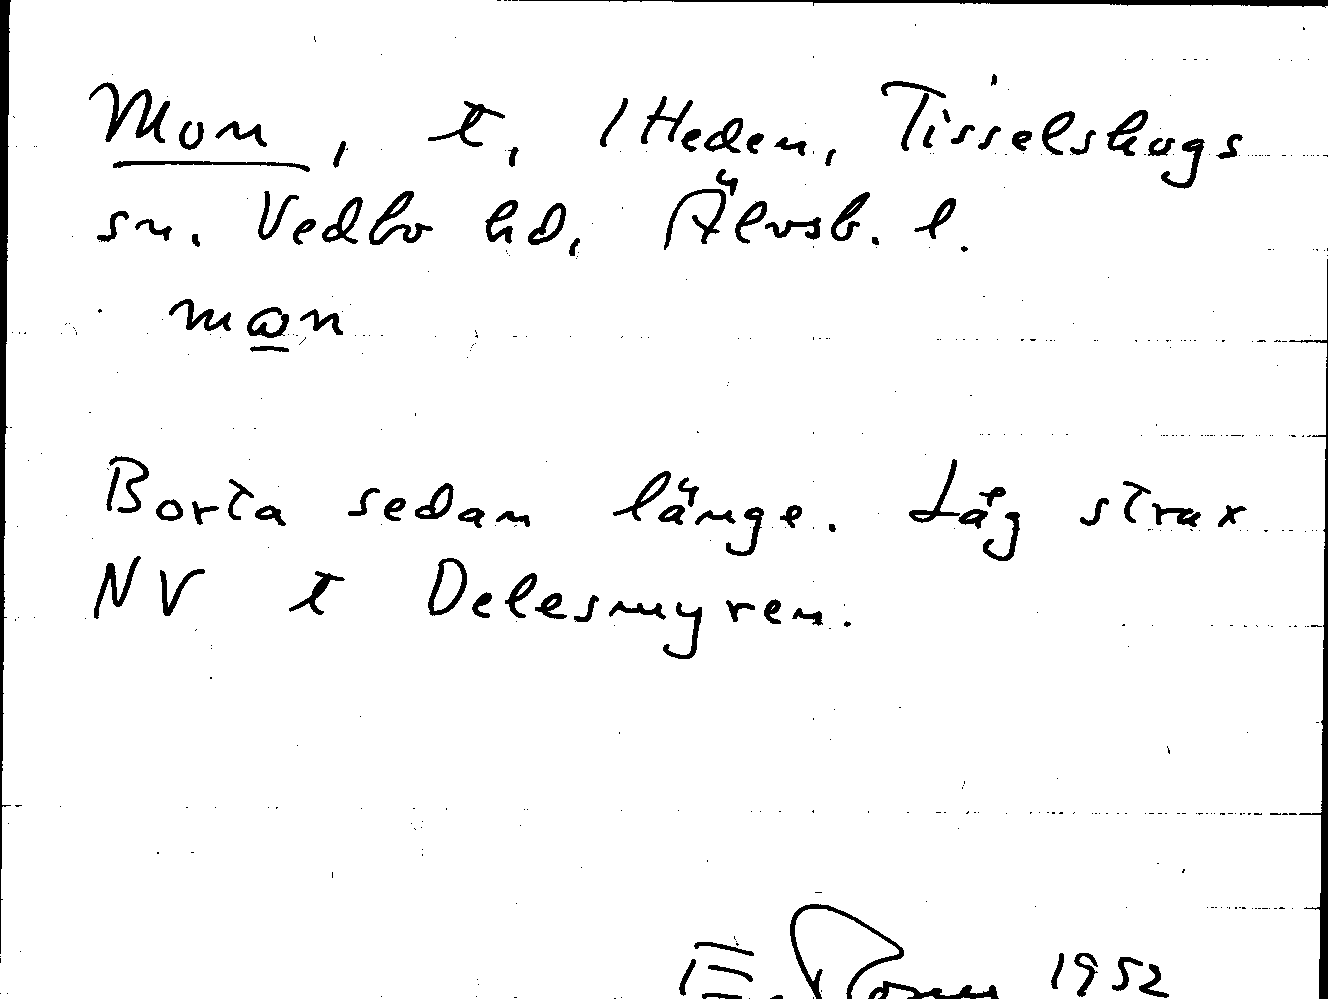 Mon, t, 1 Heden, Tisselskogs
sn. Vedbo hd, Älvsb. l.
mωn
Borta sedan länge. Låg strax
NV t Delesmyren.
E. 1952